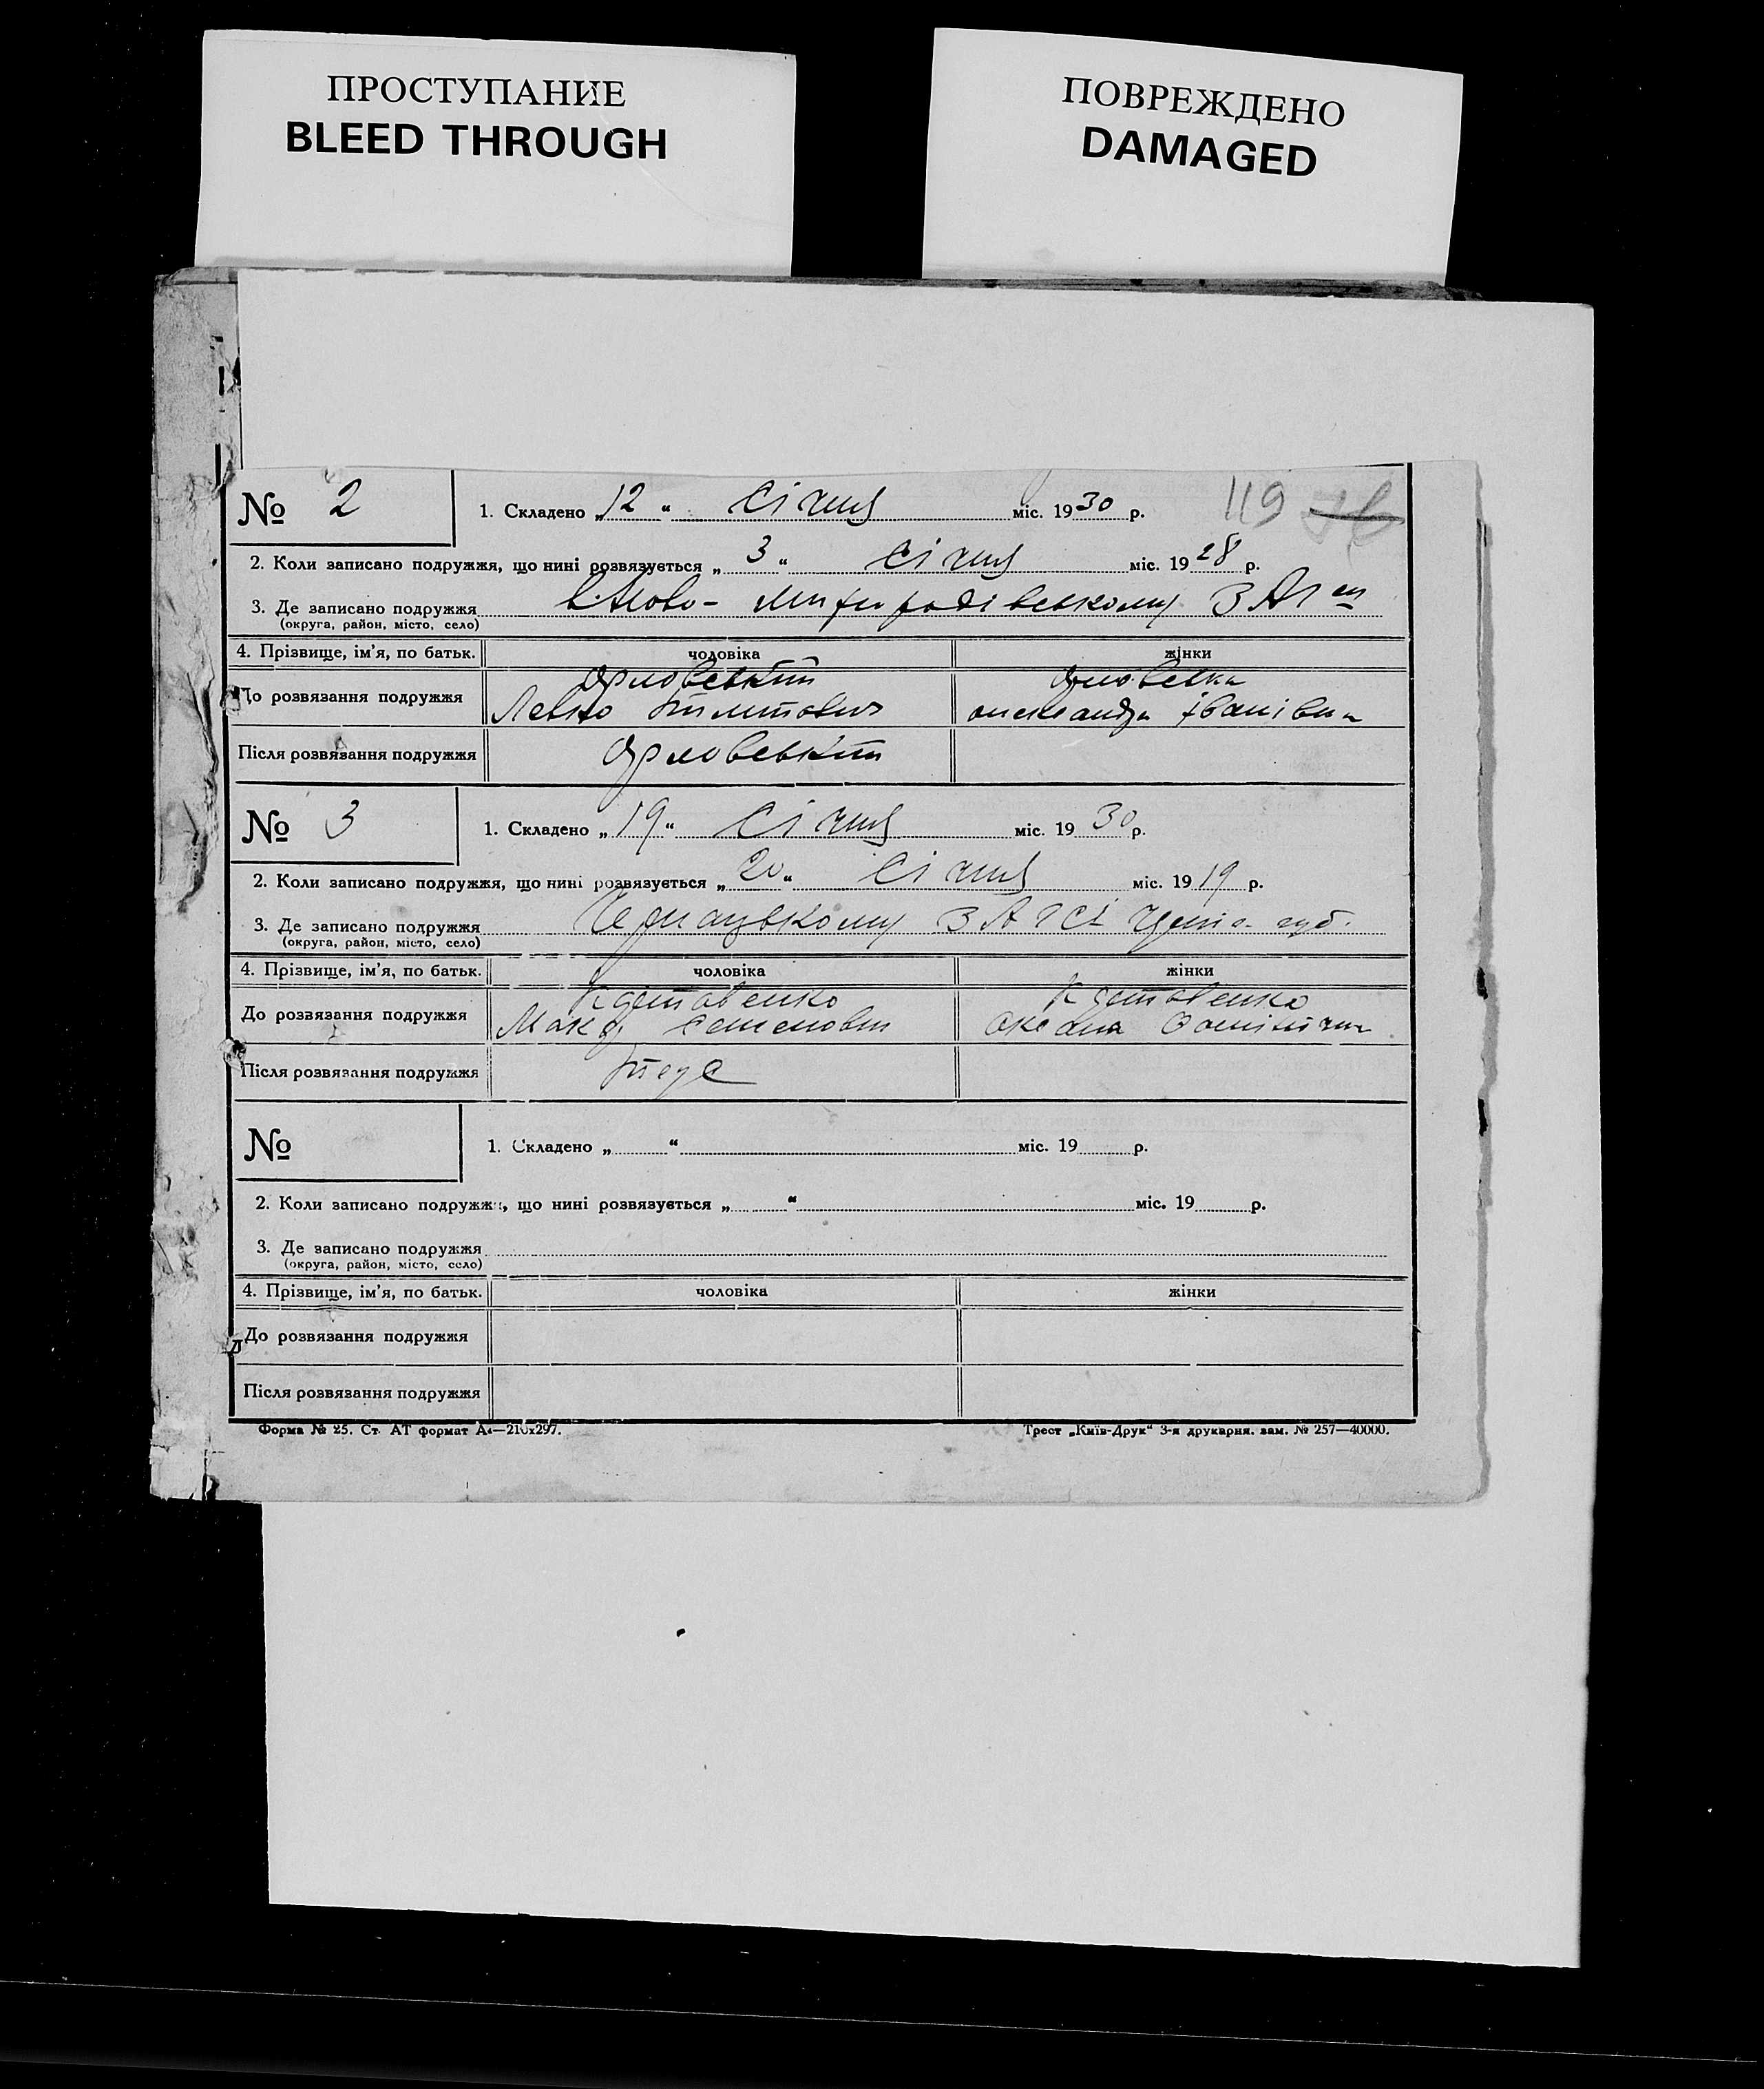 ПРОСТУПАНИЕ
BLEED THROUGH
ПОВРЕЖДЕНО
DAMAGED
№ 2
1. Складено „12“ Січня міс. 1930 р.
119
2. Коли записано подружжя, що нині розвязується „3“ Січня міс. 1928 р.
3. Де записано подружжя
(округа, район, місто, село)
4. Прізвище, ім'я, по батьк. чоловіка жінки
До розвязання подружжя
Орловський
Левко
Іванівна
Після розвязання подружжя Орловський
№ 3
1. Складено „19“ Січня міс. 1930 р.
2. Коли записано подружжя, що нині розвязується „20“ Січня міс. 1919 р.
3. Де записано подружжя ЗАГСі губ.
(округа, район, місто, село)
4. Прізвище, ім'я, по батьк. чоловіка жінки
До розвязання подружжя
Семенович
Після розвязання подружжя
№
1. Складено „ “ міс. 19 р.
2. Коли записано подружжя, що нині розвязується „ “ міс. 19 р.
3. Де записано подружжя
(округа, район, місто, село)
4. Прізвище, ім'я, по батьк. чоловіка жінки
До розвязання подружжя
Після розвязання подружжя
Форма № 25. Ст. АТ формат А4—210х297.
Трест „Київ-Друк“ 3-я друкарня. зам. № 257—40000.